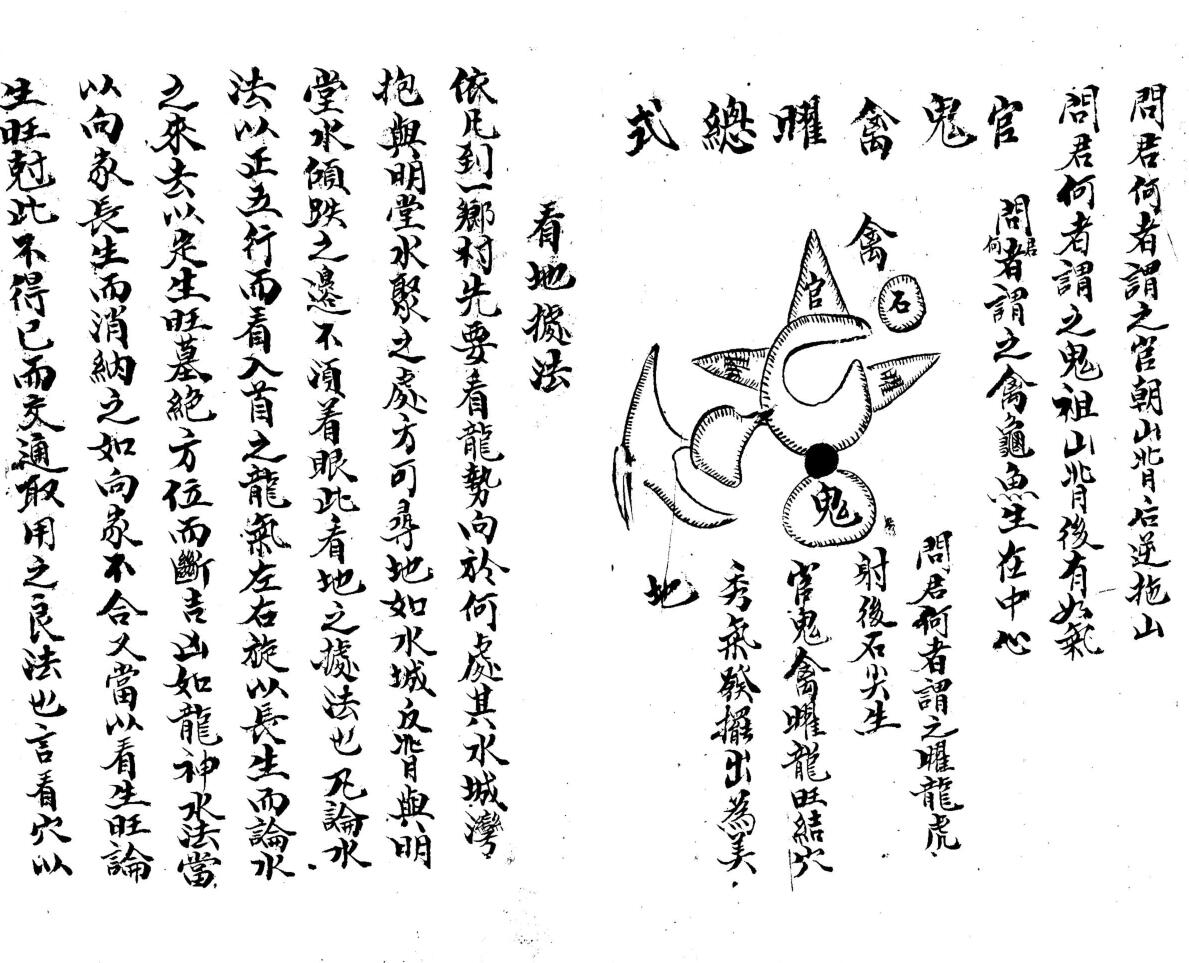 問君何者謂之官朝山背后逆拖山
問君何者謂之鬼祖山背後有如氣
問君何者謂之禽龜魚生在中心
官鬼禽曜總式
禽
石
官
曜
曜
鬼
問君何者謂之曜龍虎
射後石尖生
官鬼禽曜龍旺結穴
秀氣發擢出為美
地
看地據法
依凡到一鄉村先要看龍勢向於何處其水城灣
抱與明堂水聚之處方可尋地如水城反背與明
堂水傾跌之邊不須着眼此看地之據法也凡論水
法以正五行而看入首之龍氣左右旋以長生而論水
之來去以定生旺墓絕方位而斷吉凶如龍神水法當
以向家長生而消納之如向家不合又當以看生旺論
生旺尅此不得已而交通取用之良法也言看穴以